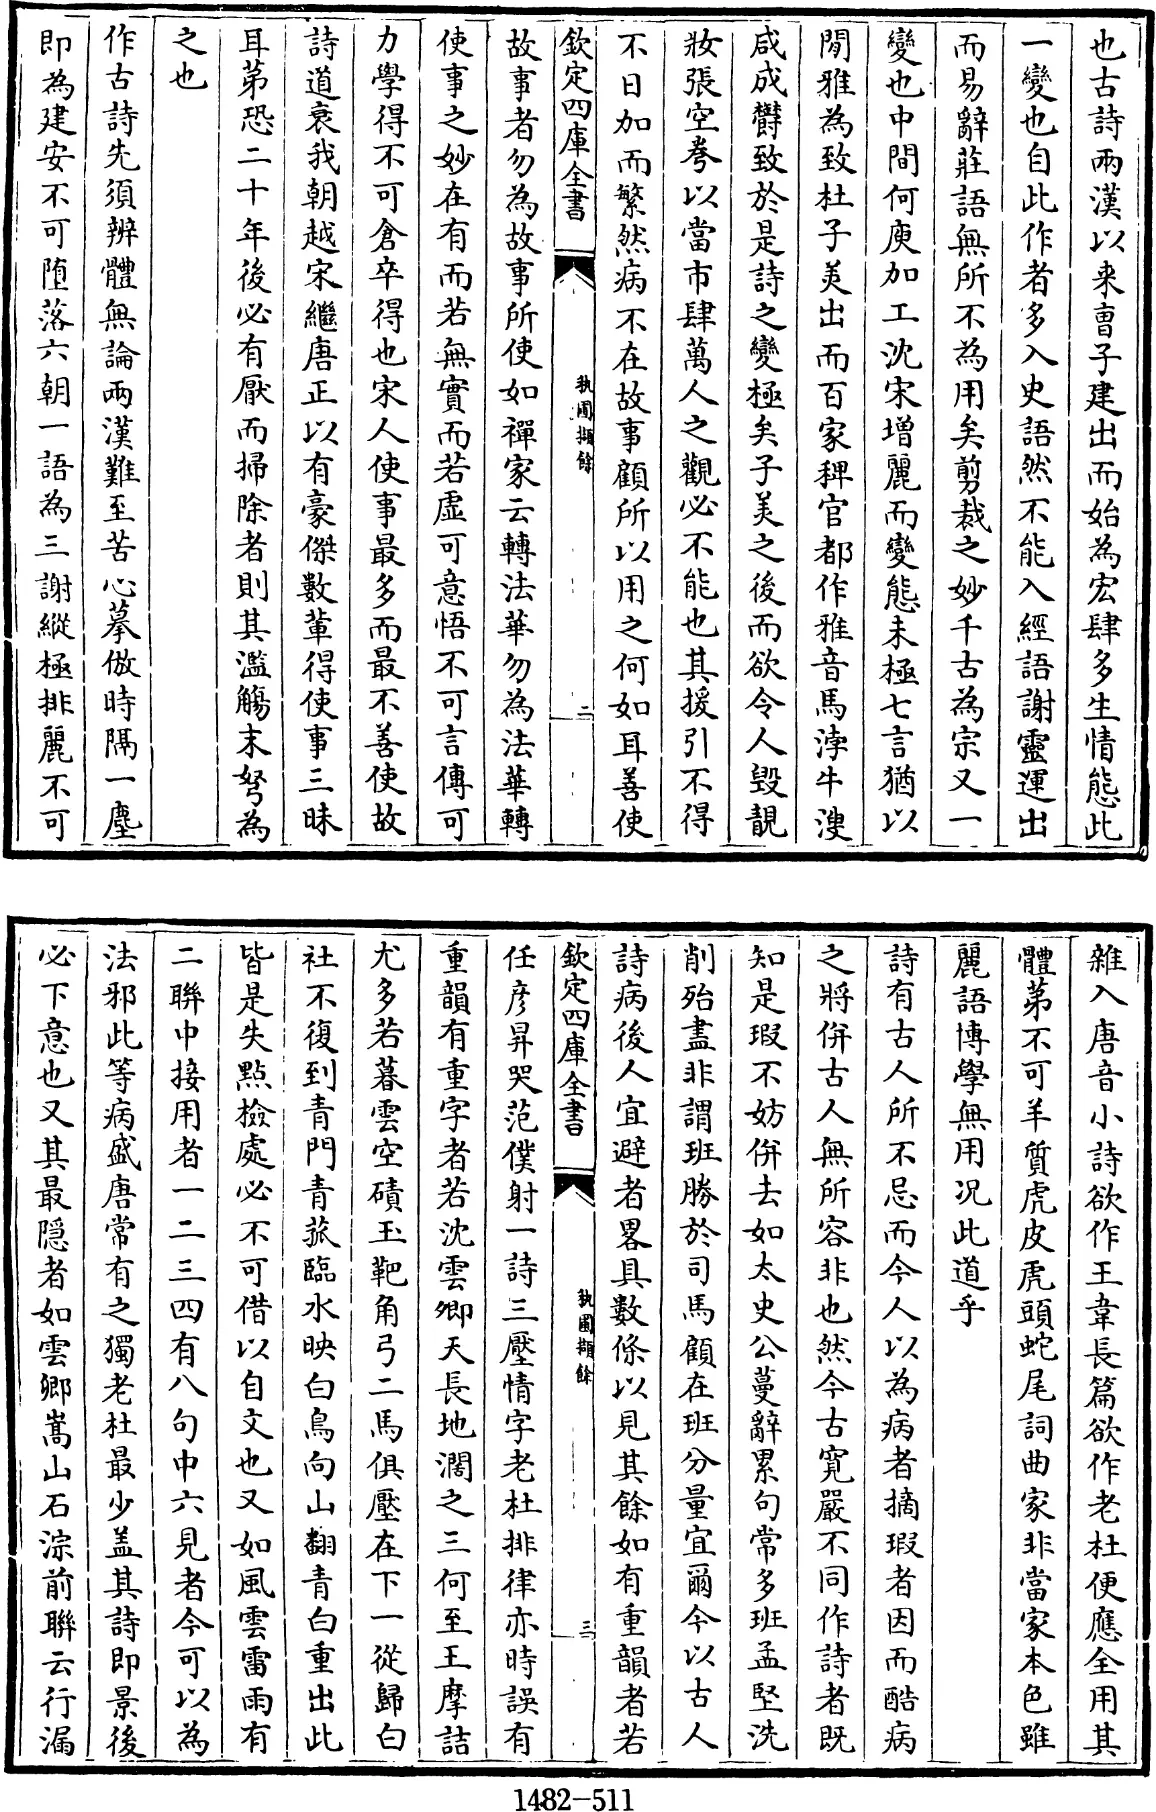 也古詩兩漢以来曹子建出而始為宏肆多生情態此
一變也自此作者多入史語然不能入經語謝靈運出
而易辭莊語無所不為用矣剪裁之妙千古為宗又一
變也中間何庾加工沈宋增麗而變態未極七言猶以
閒雅為致杜子美出而百家稗官都作雅音馬浡牛溲
咸成欝致於是詩之變極矣子美之後而欲令人毀靚
妝張空弮以當市肆萬人之觀必不能也其援引不得
不日加而繁然病不在故事顧所以用之何如耳善使
欽定四庫全書
執圃擷餘
二
故事者勿為故事所使如禪家云轉法華勿為法華轉
使事之妙在有而若無實而若虛可意悟不可言傳可
力學得不可倉卒得也宋人使事最多而最不善使故
詩道衰我朝越宋繼唐正以有豪傑數輩得使事三昧
耳第恐二十年後必有厭而掃除者則其濫觴末弩為
之也
作古詩先須辨體無論兩漢難至苦心摹倣時隔一塵
即為建安不可堕落六朝一語為三謝縱極排麗不可
雜入唐音小詩欲作王韋長篇欲作老杜便應全用其
體第不可羊質虎皮虎頭蛇尾詞曲家非當家本色雖
麗語博學無用况此道乎
詩有古人所不忌而今人以為病者摘瑕者因而酷病
之將併古人無所容非也然今古寛嚴不同作詩者既
知是瑕不妨併去如太史公蔓辭累句常多班孟堅洗
削殆盡非謂班勝於司馬顧在班分量宜爾今以古人
詩病後人宜避者畧具數條以見其餘如有重韻者若
欽定四庫全書
執圃擷餘
三
任彦昇哭范僕射一詩三壓情字老杜排律亦時誤有
重韻有重字者若沈雲卿天長地濶之三何至王摩詰
尤多若暮雲空磧玉靶角弓二馬俱壓在下一從歸白
社不復到青門青菰臨水映白鳥向山翻青白重出此
皆是失點檢處必不可借以自文也又如風雲雷雨有
二聯中接用者一二三四有八句中六見者今可以為
法邪此等病盛唐常有之獨老杜最少盖其詩即景後
必下意也又其最隱者如雲卿嵩山石淙前聯云行漏
1482-511